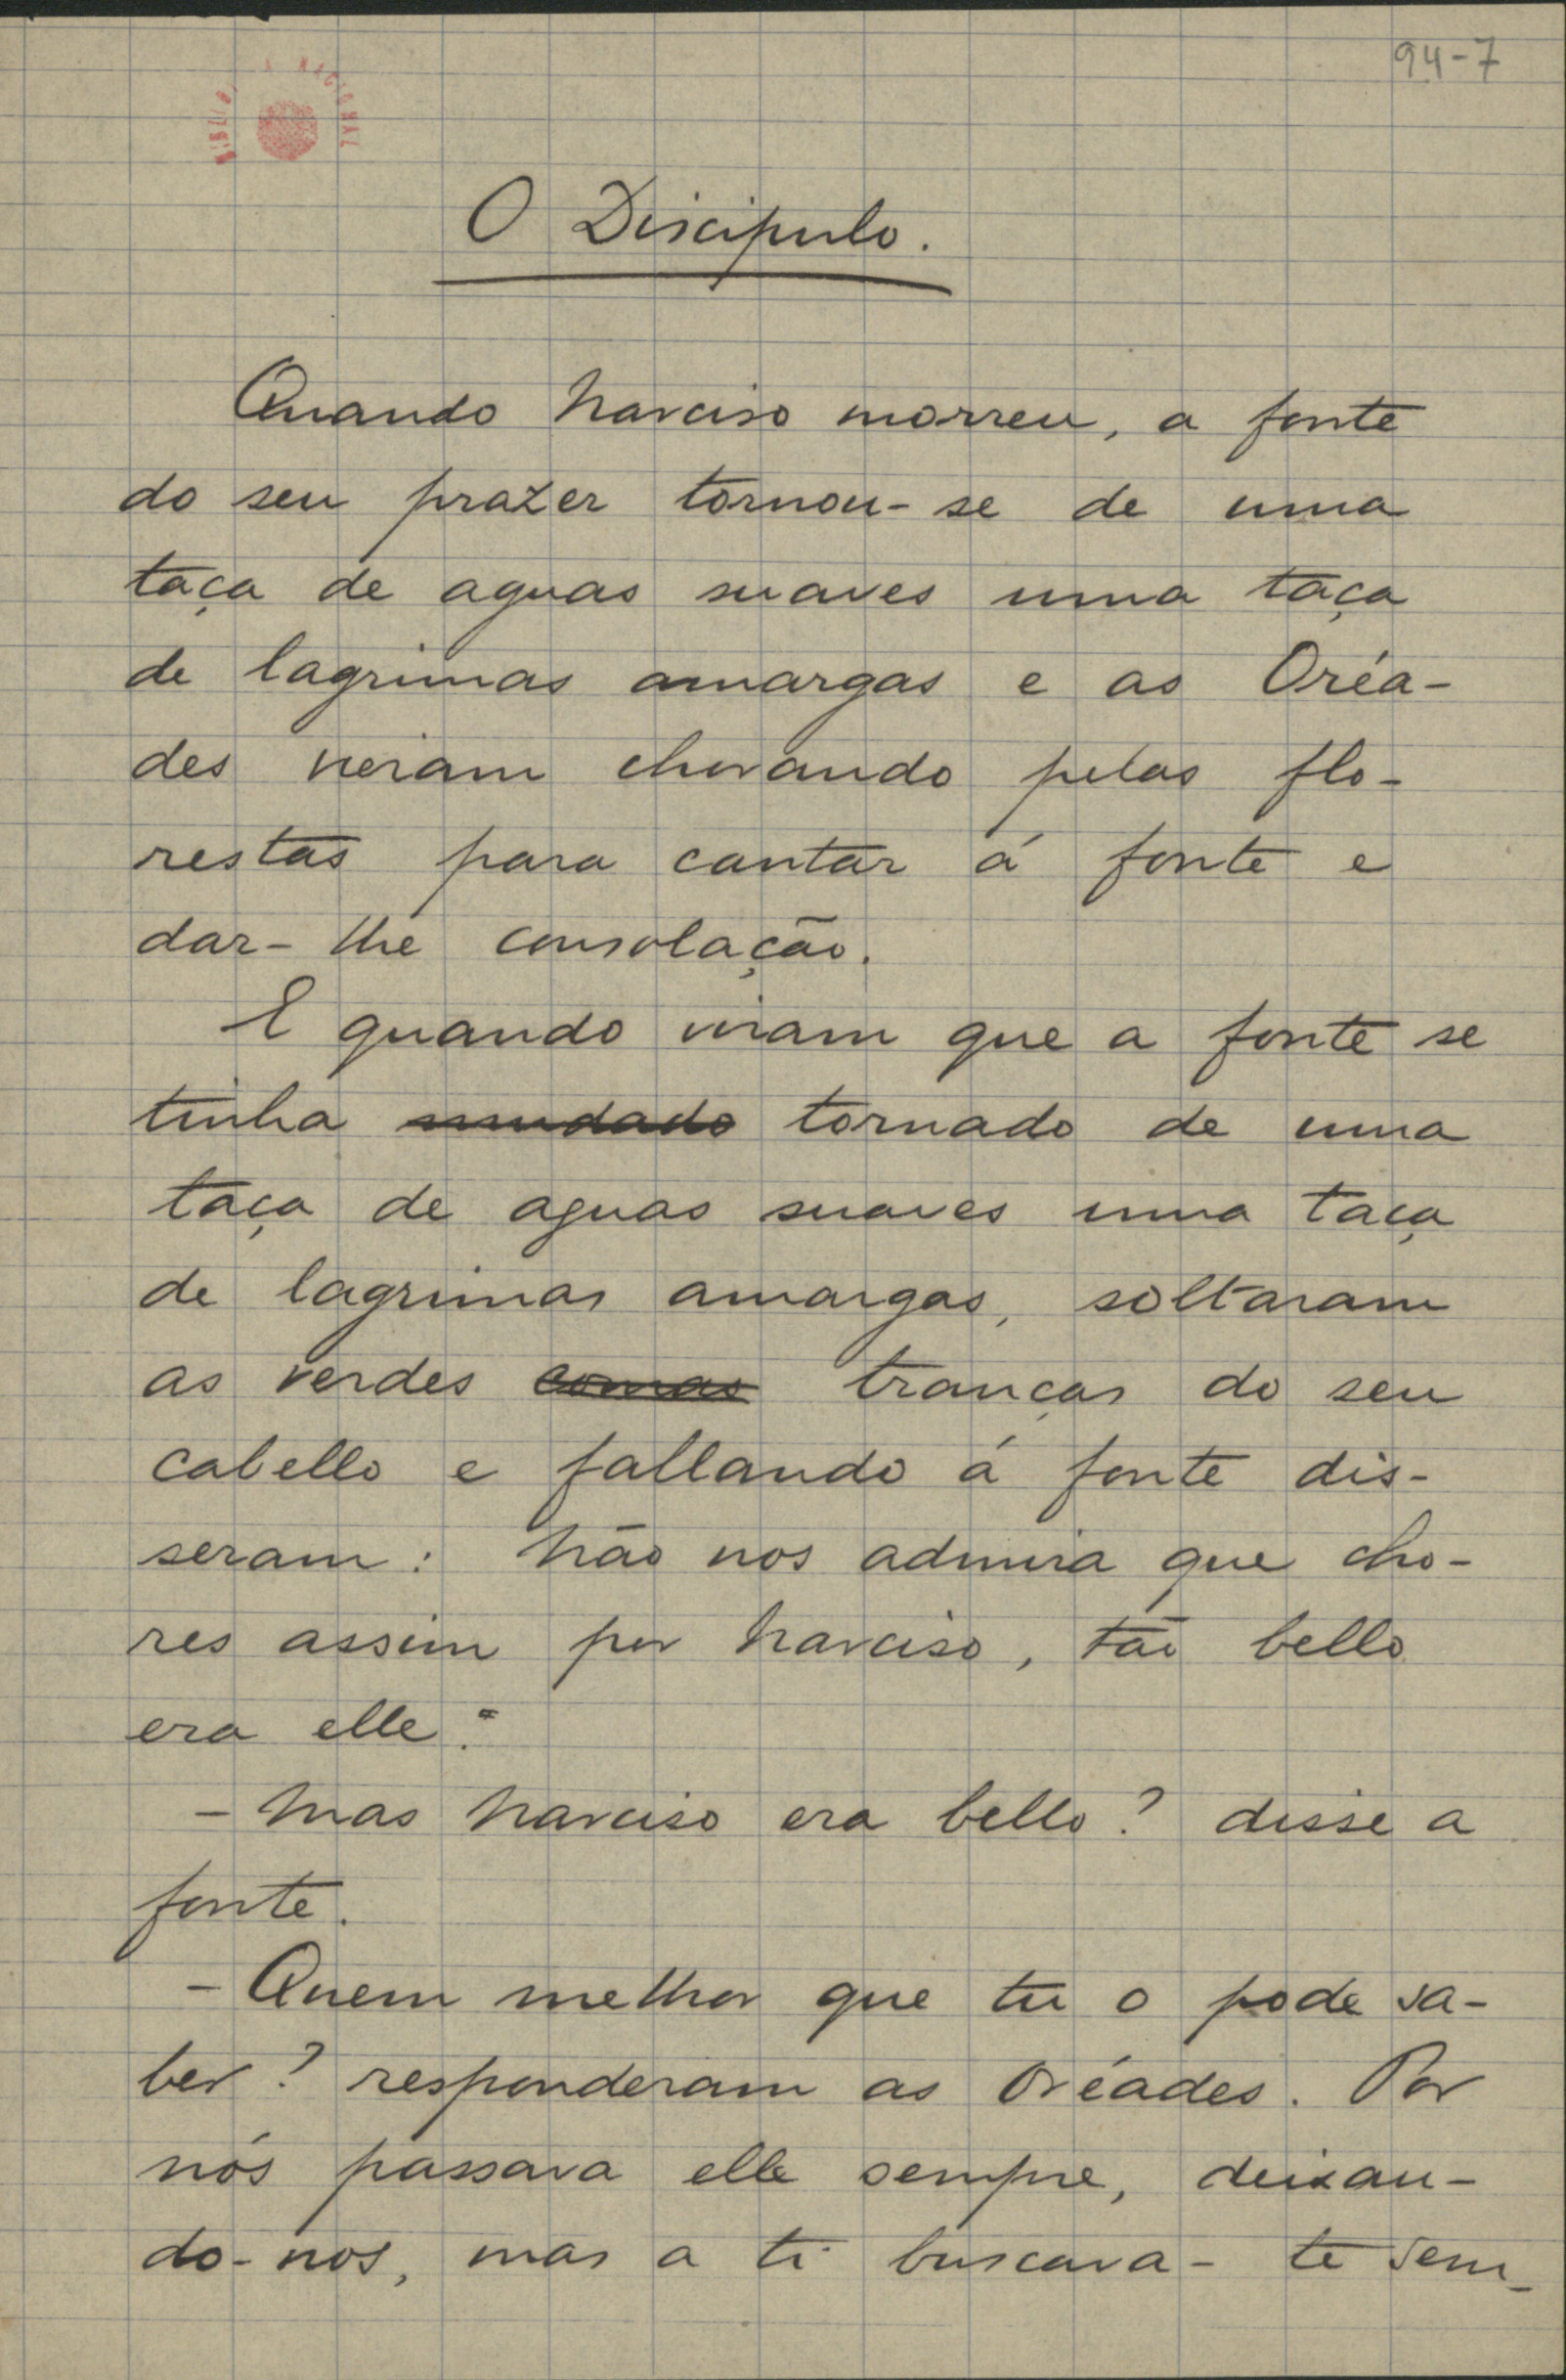 94-7
NACIONAL
O Discipulo.
Quando Narciso morreu, a fonte
do seu prazer tornou-se de uma
taça de aguas suaves uma taça
de lagrimas amargas e as Oréa-
des vieram chorando pelas flo-
restas para cantar á fonte e
dar-lhe consolação.
E quando viram que a fonte se
tinha mudado tornado de uma
taça de aguas suaves uma taça
de lagrimas amargas, soltaram
as verdes comas tranças do seu
cabello e fallando á fonte dis-
seram: Não nos admira que cho-
res assim por Narciso, tão bello
era elle."
- Mas Narciso era bello? disse a
fonte.
- Quem melhor que tu o pode sa-
ber? responderam as Oréades. Por
nós passava elle sempre, deixan-
do-nos, mas a ti buscava-te sem-